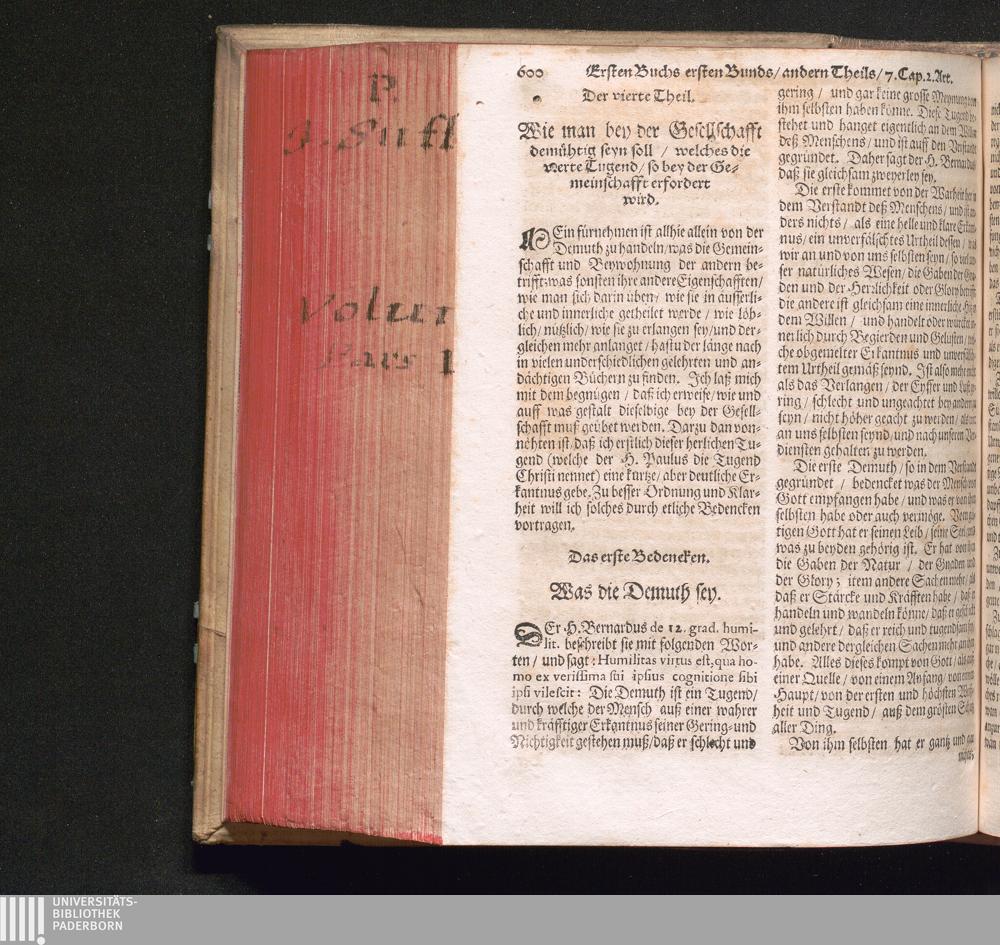 P.
J. Suff
Volum
Pars 1
600 Ersten Buchs ersten Bunds/ andern Theils/ 7. Cap. 2. Art.
Der vierte Theil.
Wie man bey der Gesellschafft
demühtig seyn soll / welches die
vierte Tugend/ so bey der Ge-
meinschafft erfordert
wird.
Ein fürnehmen ist allhie allein von der
Demuth zu handeln/ was die Gemein-
schafft und Beywohnung der andern be-
trifft: was sonsten ihre andere Eigenschafften/
wie man sich darin üben/ wie sie in äusserli-
che und innerliche getheilet werde / wie löb-
lich/ nützlich/ wie sie zu erlangen sey/ und der-
gleichen mehr anlanget/ hastu der länge nach
in vielen underschiedlichen gelehrten und an-
dächtigen Büchern zu finden. Ich laß mich
mit dem begnügen / daß ich erweise/ wie und
auff was gestalt dieselbige bey der Gesell-
schafft muß geübet werden. Darzu dan von-
nöhten ist/ daß ich erstlich dieser herlichen Tu-
gend (welche der H. Paulus die Tugend
Christi nennet) eine kurtze/ aber deutliche Er-
kantnus gebe. Zu besser Ordnung und Klar-
heit will ich solches durch etliche Bedencken
vortragen.
Das erste Bedencken.
Was die Demuth sey.
DEr H. Bernardus de 12. grad. humi-
lit. beschreibt sie mit folgenden Wor-
ten/ und sagt: Humilitas virtus est, qua ho-
mo ex verissima sui ipsius cognitione sibi
ipsi vilescit: Die Demuth ist ein Tugend/
durch welche der Mensch auß einer wahrer
und kräfftiger Erkantnus seiner Gering- und
Nichtigkeit gestehen muß/ daß er schlecht und
gering / und gar keine grosse Meynung von
ihm selbsten haben könne. Diese Tugend be-
stehet und hanget eigentlich an dem Willen
deß Menschens/ und ist auff den Verstand
gegründet. Daher sagt der H. Bernardus
daß sie gleichsam zweyerley sey.
Die erste kommet von der Warheit her in
dem Verstandt deß Menschens/ und ist an-
ders nichts/ als eine helle und klare Erkant-
nus/ ein unverfälschtes Urtheil dessen/ was
wir an und von uns selbsten seyn/ so viel un-
ser natürliches Wesen/ die Gaben der Gna-
den und der Herzlichkeit oder Glory betrifft:
die andere ist gleichsam eine innerliche
dem Willen / und handelt oder würcket in-
nerlich durch Begierden und Gelüsten / wel-
che obgemelter Erkantnus und unverfälsch-
tem Urtheil gemäß seynd. Ist also mehr nicht
als das Verlangen / der Eyffer und Lust ge-
ring/ schlecht und ungeachtet bey andern zu
seyn / nicht höher geacht zu werden/ als
an uns selbsten seynd/ und nach unserem Ver-
diensten gehalten zu werden.
Die erste Demuth/ so in dem Verstandt
gegründet / bedencket was der Mensch von
Gott empfangen habe / und was er von ihm
selbsten habe oder auch vermöge. Vom gü-
tigen Gott hat er seinen Leib/ seine Seel/ und
was zu beyden gehörig ist. Er hat von ihm
die Gaben der Natur / der Gnaden und
der Glory; item andere Sachen mehr/ als
daß er Stärcke und Kräfften habe / daß er
handeln und wandeln könne/ daß er geschickt
und gelehrt / daß er reich und tugendsam sey/
und andere dergleichen Sachen mehr an sich
habe. Alles dieses kompt von Gott/ als auß
einer Quelle/ von einem Anfang/ von einem
Haupt/ von der ersten und höchsten Weiß-
heit und Tugend/ auß dem grösten Schatz
aller Ding.
Von ihm selbsten hat er gantz und gar
nichts/
UNIVERSITÄTS-
BIBLIOTHEK
PADERBORN